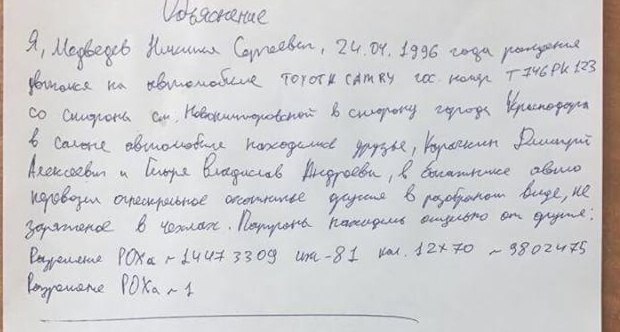 Объяснение
Я, Медведев Никита Сергеевич, 24.04.1996 года рождения
двигался на автомобиле TOYOTA CAMRY гос. номер Т746РК123
со стороны ст. Новотитаровской в сторону города Краснодара
в салоне автомобиля находились друзья, Карачкин Дмитрий
Алексеевич и Владислав Андреевич, в багажнике авто
перевозил огнестрельное охотничье оружие в разобраном виде, не
заряженое в чехлах. Патроны находились отдельно от оружия:
Разрешение РОХа №14473309 иж-81 кал. 12х70 №9802475
Разрешение РОХа №1